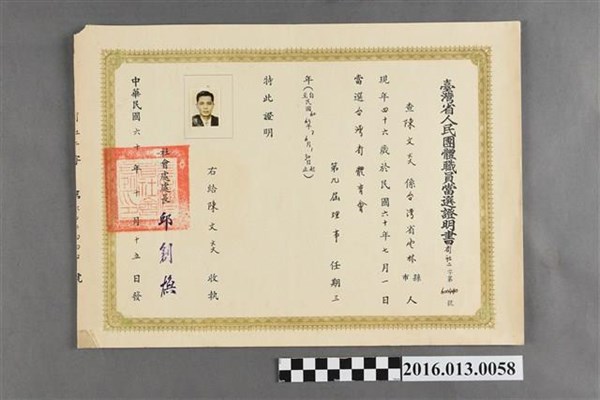 臺灣省人民團體職員當選證明書
查陳文 係台灣省雲林縣市人
現年四十六歲於民國六十年七月一日
當選台灣省體育會
第九屆理事 任期三
年
特此證明
右給陳文 收執
社會處處長 邱創煥
中華民國六十年 月十五日發
2016.013.0058